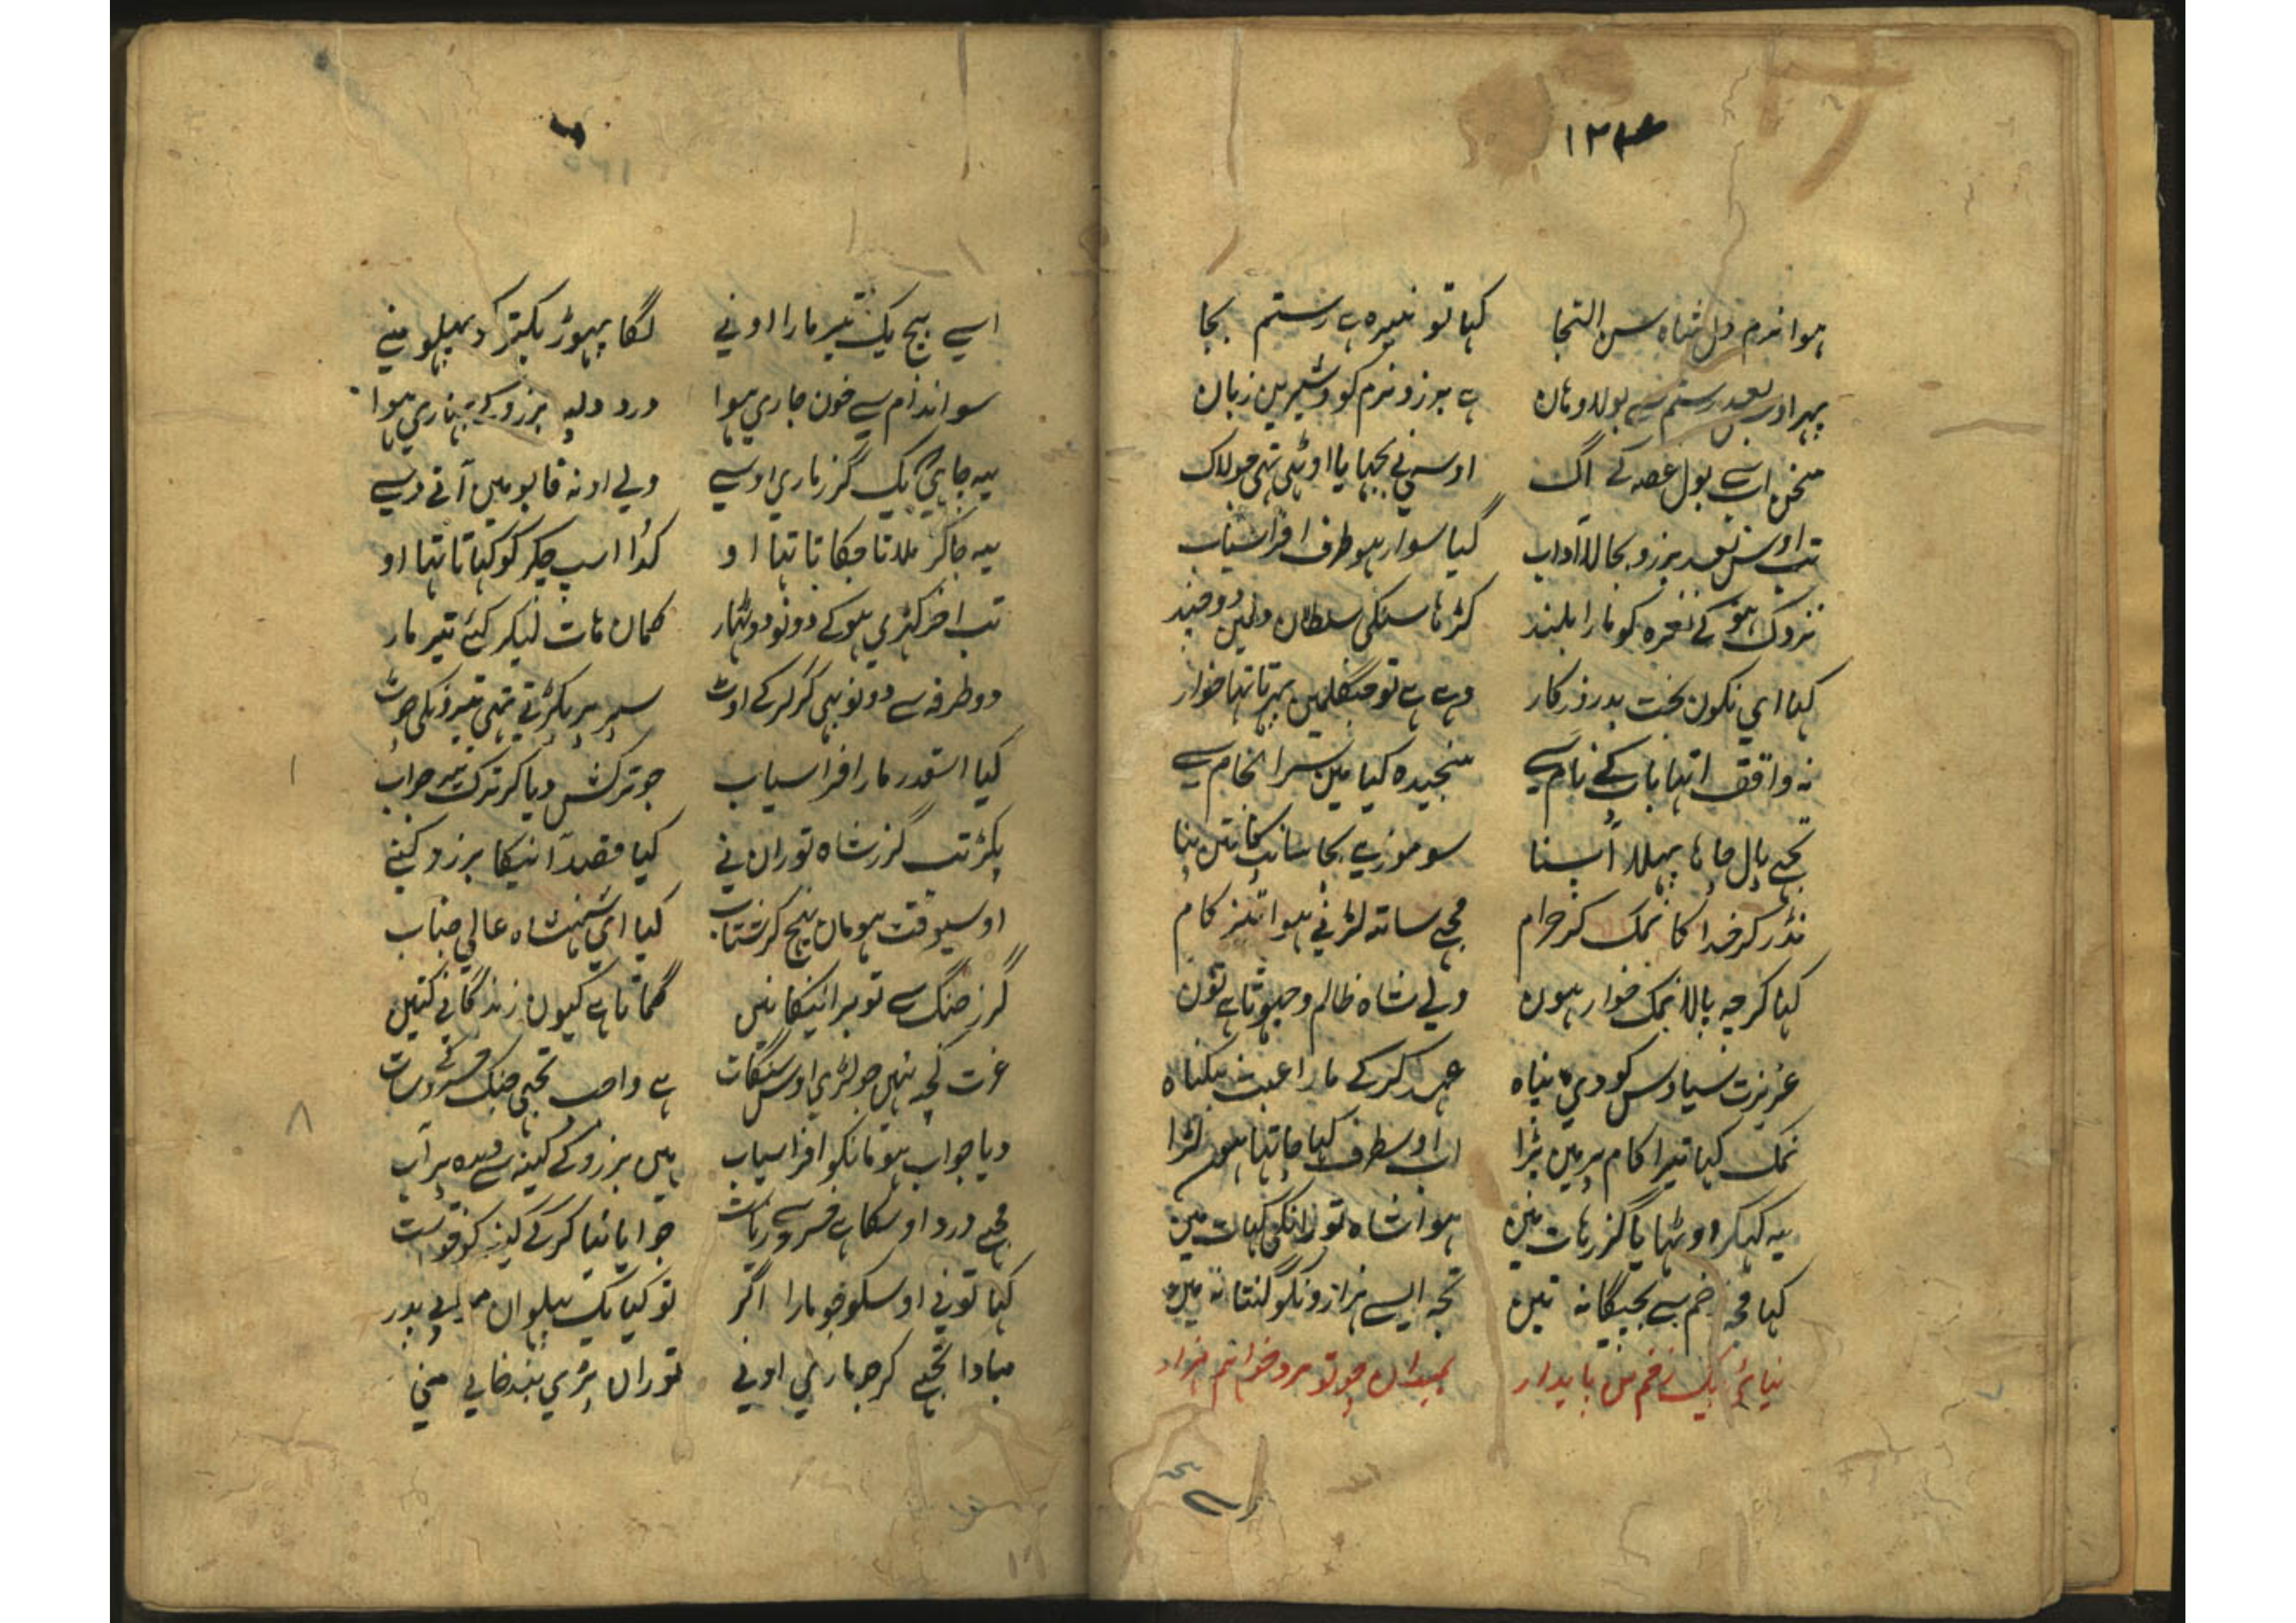 ہوا نرم دل شاہ سن التجا کہا تو نبیرہ ہے رستم بجا
پہر اوس بعد رستم سے بولا وہان ہے برزو نرم گو و شیرین زبان
سخن اب سے بول غصہ کے اگ اوسنے بجہایا اوٹہی تہی جو لاک
تب اوس بعد برزو بجا لا آداب گیا سوار ہو طرف افراسیاب
نزدک ہو کے نعرہ کو مارا بلند سلطان دو چند
کہا ای نکون بخت بد روزکار وہے ہے تو جنگلمین پہرتا تہا خوار
نہ واقف اتہا باپ کے نام سے سنجیدہ کیا مین سرانجام سے
تجہے پال جانا پہلا اپنا سو موزی بجا سانپ کا تین بنا
نڈر کر خدا کا نمک کر حرام مجہے ساتہ لڑنے ہوا تیز کام
کہا کرچہ پالا نمک خوار ہون ولے شاہ ظالم و جہوٹا ہے تون
عزیزت سیاوس کو دی پناہ عہد کرکے مارا عبث بیکناہ
نمک کہا تیرا کام پر مین پڑا اب اوسطرف کہا جاتہا ہون لڑا
یہ کہکر اوٹہایا گرز ہات مین ہوا شاہ تورانکی کہات مین
کہا مجہ زخم سے بچیگا نہ تین تجہ ایسے ہزارونکو گنتا نہ مین
نیائی بیک زخم من پایدار بمیدان چو تو مرد خوانم ہزار
۱۲۴
اسے بیچ یک تیر مارا اونے لگا پہوڑ بکتر کو پہلو منے
سو اندام سے خون جاری ہوا درد دلپہ برزو کے بہاری ہوا
یہ چاہی کہ یک گرز ماری اوسے ولے او نہ قابو مین آتے دسے
یہ جاکر ملاتا چکاتا تہا او کدا اسپ چکر کو کہاتا تہا او
تب اخر کہڑی ہوکے دونو دو ٹہار کمان ہات لیکر کئے تیر مار
دو طرفہ سے دونو بہی کر کر کے اوٹ سپر پر پکڑتے تہے تیرونکی چوٹ
کیا اسقدر مار افراسیاب جو ترکش دیا کر ترک تیر جواب
پکڑ تب گرز شاہ توران نے کیا قصد آنیکا برزو کنے
اوسیوقت ہومان بیچ کر شتاب کہا ای شہنشاہ عالی جناب
گرز جنگ سے تو بر انیکا نین گماتا ہے کیون زندگانی کتین
عزت کچہ نہین جو لڑی اوس سنگات ہے واجب تجہی جنک خسرو کے سات
دیا جواب ہومانکو افراسیاب مین برزو کے کینہ سے
مجہے درد اوسکا ہے خسرو سے زیاست جوایا نیا کرکے کینہ کو
کہا تونے اوسکو جو مارا اگر تو کہا یک پہلوان بے پدر
مبادا تجہے کر جو مارے اونے توران پڑی بند خانے منی